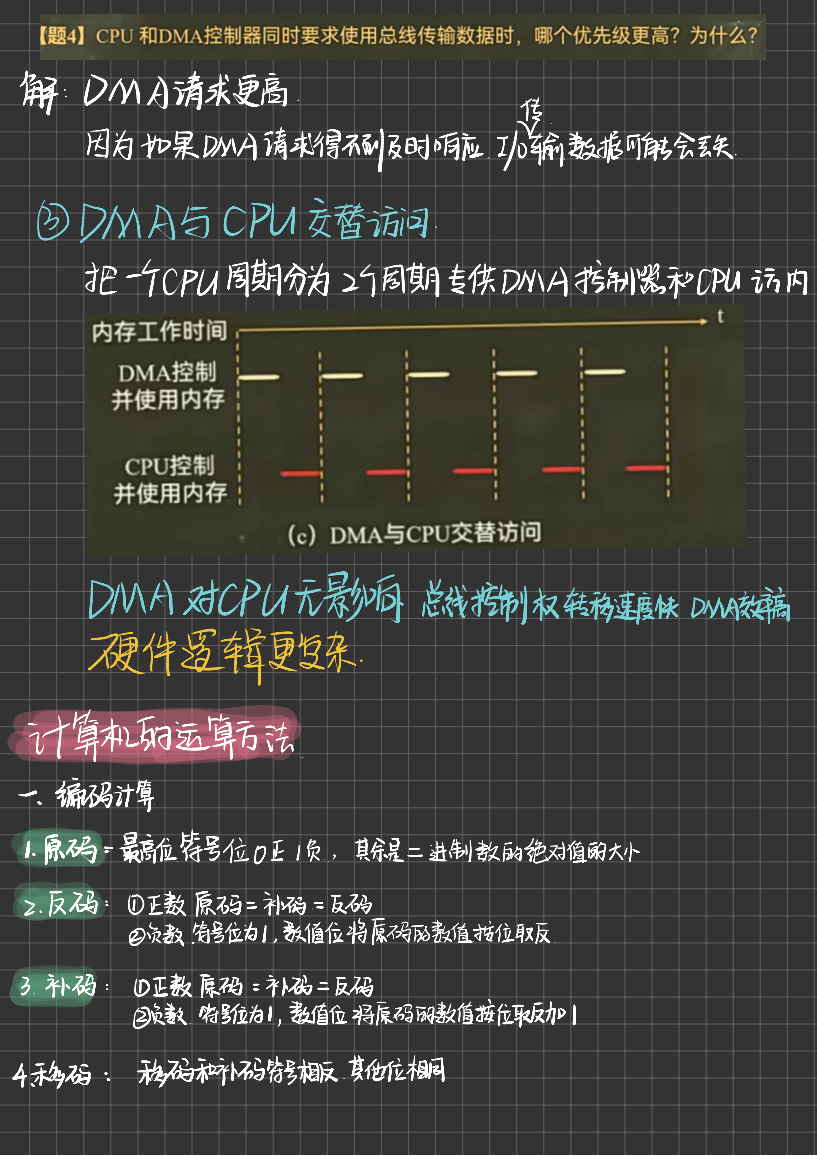 【题4】CPU 和DMA控制器同时要求使用总线传输数据时，哪个优先级更高？为什么？
解: DMA请求更高.
因为如果DMA请求得不到及时响应. I/O传输数据可能会丢失.
③ DMA与CPU交替访问.
把一个CPU周期分为2个周期专供DMA控制器和CPU访内
内存工作时间
t
DMA控制
并使用内存
CPU控制
并使用内存
（c）DMA与CPU交替访问
DMA对CPU无影响. 总线控制权转移速度快 DMA效率高
硬件逻辑更复杂.
计算机的运算方法.
一、编码计算
1.原码=最高位符号位0正1负，其余是二进制数的绝对值的大小
2.反码: ①正数 原码=补码=反码
②负数.符号位为1,数值位将原码的数值按位取反
3.补码: ①正数 原码=补码=反码
②负数.符号位为1,数值位将原码的数值按位取反加1
4.移码: 移码和补码符号相反.其他位相同